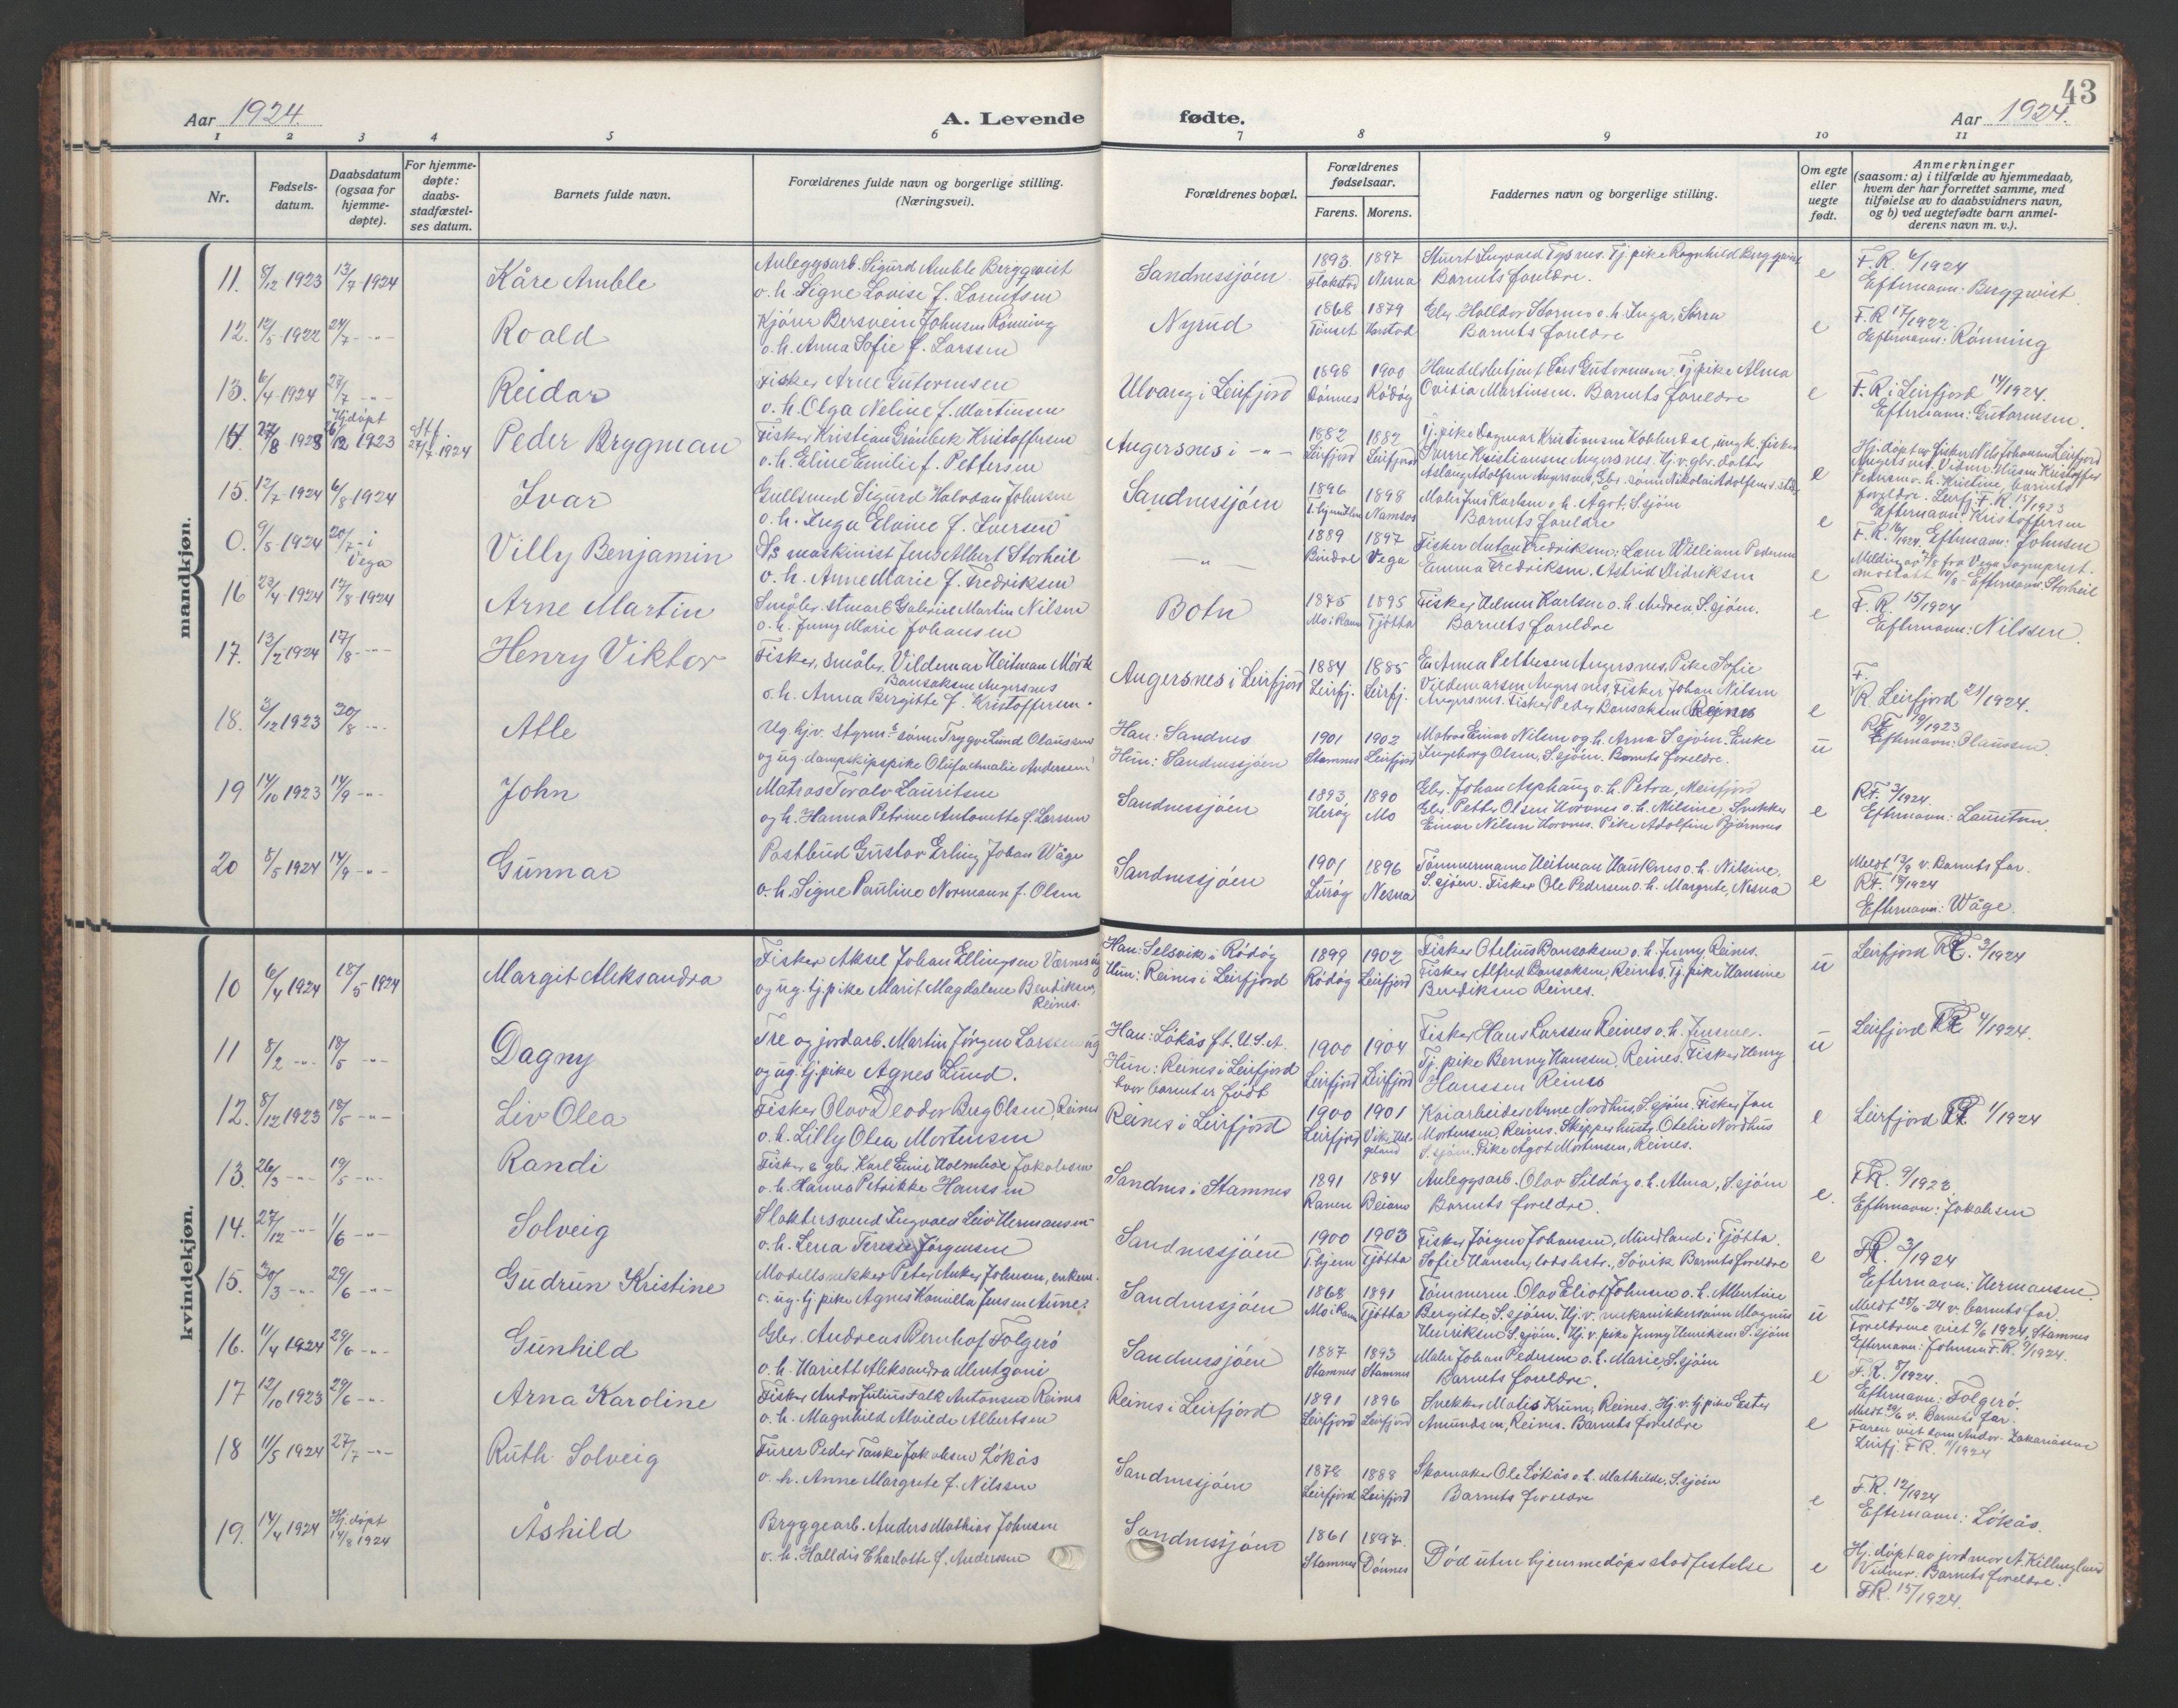 43
Aar 1924.
A. Levende
fødte.
Aar 1924.
1 2 3 4 5 6 7 8 9 10 11
Nr.
Fødsels-
datum.
Daabsdatum
(ogsaa for
hjemme-
døpte).
For hjemme-
døpte:
daabs-
stadfæstel-
ses datum.
Barnets fulde navn.
Forældrenes fulde navn og borgerlige stilling.
(Næringsvei).
Forældrenes bopæl.
Forældrenes
fødselsaar.
Farens. Morens.
Faddernes navn og borgerlige stilling.
Om egte
eller
uegte
født.
Anmerkninger
(saasom: a) i tilfælde av hjemmedaab,
hvem der har forrettet samme, med
tilføielse av to daabsvidners navn,
og b) ved uegtefødte barn anmel-
derens navn m. v.).
mandkjøn.
11. 8/12 1923 13/7 1924 Kåre Amble
Anleggsarb. Sigurd Amble Bergqvist
o. h. Signe Lovise f. Lorentsen
Sandnessjøen
1893 1897
Flakstad Nesna
Barnets foreldre.
e
F.R. 6/1924
Efternavn: Bergqvist.
12. 12/5 1922 24/7 -"- Roald
Kjører Bersvein Johnsen Rønning
o. h. Anna Sofie f. Larssen
Nyrud
1868 1879
Tønset Harstad
Barnets foreldre
e
F.R. 17/1922.
Efternavn: Rønning
13. 6/4 1924 27/7 -"- Reidar
Fisker Arne Gutormsen
o. h. Olga Neline f. Martinsen
Ulvang i Leirfjord
1898 1900
Dønnes Rødøy
Handelsbetjent Lars Gutormsen. Tj. pike Alma
Ovidia Martinsen. Barnets foreldre
e
F.R. i Leirfjord 14/1924.
Efternavn: Gutormsen.
14. 27/8 1923 Hj. døpt 26/12 1923 Stf. 27/7 1924 Peder Brygman
Fisker Kristian Grønbek Kristoffersen
o. h. Eline Emilie f. Pettersen
Angersnes i -"-
1882 1882
Leirfjord Leirfjord
e
Hj. døpt av fisker Nels Johansen Leirfjord
Pedersen o. h. Kristine, barnets
foreldre. Leirfj. F.R. 15/1923
Efternavn: Kristoffersen
15. 12/7 1924 6/8 1924 Ivar
Gullsmed Sigurd Halvdan Johnsen
o. h. Inga Elvine f. Iversen
Sandnessjøen
1896 1898
Namsos
Maler Jens Karlsen o. h. Agot, S.sjøen
Barnets foreldre
e
F.R. 16/1924. Efternavn: Johnsen
0. 9/5 1924 20/7 - i Vega Villy Benjamin
D/s maskinist Jens Albert Storheil
o. h. Anne Marie f. Fredriksen
-"-
1889 1897
Bindal Vega
Fisker Anton Fredriksen. Lars William Pedersen
Emma Fredriksen. Astrid Didriksen
e
Efternavn: Storheil
16 23/4 1924 17/8 1924 Arne Martin
Småbr. stuarb. Gabriel Martin Nilsen
o. h. Jenny Marie Johansen
Botn
1875 1895
Mo i Rana Tjøtta
Fisker Helmer Karlsen o. h. Andrea S.sjøen.
Barnets foreldre
e
F.R. 15/1924
Efternavn: Nilssen.
17. 13/2 1924 17/8 -"- Henry Viktor
Fisker, småbr. Vildemar Heitman Mørk
Bansaksen Angersnes
o. h. Anna Bergitte f. Kristoffersen.
Angersnes i Leirfjord
1884 1885
Leirfj. Leirfj.
En Anna Pettersen Angersnes, Pike Sofie
Vildemarsen Angersnes, Fisker Johan Nilsen
Angersnes. Fisker Peder Bansaksen Reines
e
F.R. Leirfjord 21/1924.
18. 3/12 1923 30/8 -"- Atle
Ug. hj.v. styrm.s sønn Trygve Lund Olaussen
og ug. dampskipspike Oluf Amalie Andersen
Han: Sandnes
Hun: Sandnessjøen
1901 1902
Stamnes Leirfjord
Matros Einar Nilsen og h. Arna S.sjøen. Enke
Ingeborg Olsen, S.sjøen. Barnets foreldre.
u
R.F. 19/1923
Efternavn: Olaussen.
19 14/10 1923 14/9 -"- John
Matros Toralv Lauritsen
og h. Hanna Petrine Antonette f. Larssen
Sandnessjøen
1893 1890
Herøy Mo
Gbr. Johan Asphaug o. h. Petra, Meisfjord
Gbr. Petter Olsen Horvnes o. h. Nilsine. Snekker
Einar Nilsen Horvnes. Pike Adolfine Bjørnnes
e
R.F. 3/1924.
Efternavn: Lauritsen.
20 8/5 1924 14/9 -"- Gunnar
Postbud Gustav Erling Johan Wåge
o. h. Signe Pauline Normann f. Olsen
Sandnessjøen
1901 1896
Lurøy Nesna
Tømmermann Heitman Hauknes o. h. Nilsine,
S.sjøen. Fisker Ole Pedersen o. h. Margrete, Nesna
e
Meldt 13/9 v. Barnets far.
R.F. 18/1924
Efternavn: Wåge.
kvindekjøn.
10 6/4 1924 18/5 1924 Margit Aleksandra
Fisker Aksel Johan Ellingsen Værnes ug
og ug. tj. pike Marit Magdalene Bendiksen,
Reines.
Han: Selsvik i Rødøy
Hun: Reines i Leirfjord
1899 1902
Rødøy Leirfjord
Fisker Otelius Bansaksen o. h. Jenny Reines.
Fisker Alfred Bansaksen, Reines. Tj. pike Hansine
Bendiksen Reines.
u
Leirfjord F.R. 3/1924
11 8/2 -"- 18/5 -"- Dagny
Tre og jordarb. Martin Jørgen Larssen ug
og ug. tj. pike Agnes Lund.
Han: Løkås f. t. U.S.A.
Hun: Reines i Leirfjord
hvor barnet er født
1900 1904
Leirfjord Leirfjord
Fisker Hans Larssen Reines o. h. Jensine.
Tj. pike Benny Hanssen, Reines. Fisker Henry
Hanssen Reines
u
Leirfjord F.R. 4/1924.
12. 8/12 1923 18/5 -"- Liv Olea
Fisker Olav Deodor Berg Olsen, Reines
o. h. Lilly Olea Mortensen
Reines i Leirfjord
1900 1901
Leirfjord Vik, Hel-
geland
Kaiarbeider Arne Nordhus, S.sjøen. Fisker Jan
Mortensen, Reines. Skippershustr. Otelie Nordhus
S.sjøen. Pike Ågot Mortensen, Reines.
e
Leirfjord F.R. 1/1924
13. 26/3 -"- 19/5 -"- Randi
Fisker & gbr. Karl Emil Holmboe Jakobsen
o. h. Hanna Petrikke Hanssen
Sandnes i Stamnes
1891 1894
Ranen Beiarn
Anleggsarb. Olav Sildøy o. h. Alma, S.sjøen
Barnets foreldre.
e.
F.R. 9/1923
Efternavn: Jakobsen
14. 27/12 -"- 1/6 -"- Solveig
Slaktersvend Ingvald Leiv Hermansen
o. h. Lena Terese Jørgensen
Sandnessjøen
1900 1903
T.hjem Tjøtta
Fisker Jørgen Johansen, Mindland i Tjøtta.
Sofie Hansen, lodshstr., Søvik Barnets foreldre
e
F.R. 3/1924
Efternavn: Hermansen.
15. 30/3 -"- 29/6 -"- Gudrun Kristine
Modellsnekker Peter Anker Johnsen, enkem.
o. ug. tj. pike Agnes Kamilla Jensen Aune
Sandnessjøen
1868 1891
Mo i Rana Tjøtta
Tømmerm. Olav Eliot Johnsen o. h. Albertine
Bergitte, S.sjøen. Hj. v. mekanikkersønn Magnus
Henriksen S.sjøen. Hj. v. pike Jenny Henriksen S.sjøen
u
Meldt 28/6-24 v. barnets far.
Foreldrene viet 9/6 1924, Stamnes
Efternavn: Johnsen F.R. 9/1924.
16. 11/4 1924 29/6 -"- Gunhild
Gbr. Andreas Bernhof Folgerø
o. h. Hariett Aleksandra Mentzoni
Sandnessjøen
1887 1893
Stamnes Stamnes
Maler Johan Pedersen o. h. Marie, S.sjøen
Barnets foreldre.
e
F.R. 8/1924.
Efternavn: Folgerø.
17 12/10 1923 29/6 -"- Arna Karoline
Fisker Andor Julius Falk Antonsen Reines
o. h. Magnhild Alvilde Albertsen
Reines i Leirfjord
1891 1896
Leirfjord Leirfjord
Snekker Matis Krum, Reines. Hj. v. tj. pike Ester
Amundsen, Reines. Barnets foreldre
e
Meldt 29/6 v. Barnets far.
Faren viet som Andor Zakariassen
Leirfj. F.R. 11/1924
18 11/5 1924 27/7 -"- Ruth Solveig
Fører Peder Tanke Jakobsen Løkås
o. h. Anne Margrete f. Nilssen
Sandnessjøen
1878 1888
Leirfjord Leirfjord
Skomaker Ole Løkås o. h. Mathilde, S.sjøen
Barnets foreldre
e
F.R. 12/1924
Efternavn: Løkås.
19. 14/4 1924 Hj. døpt 14/8 1924 Åshild
Bryggearb. Anders Mathias Johnsen
o. h. Halldis Charlotte f. Anderssen
Sandnessjøen
1861 1897.
Stamnes Dønnes
Død uten hjemmedåps stadfestelse
e
Hj. døpt av jordmor A. Killingland
Vidner: Barnets foreldre.
F.R. 15/1924.